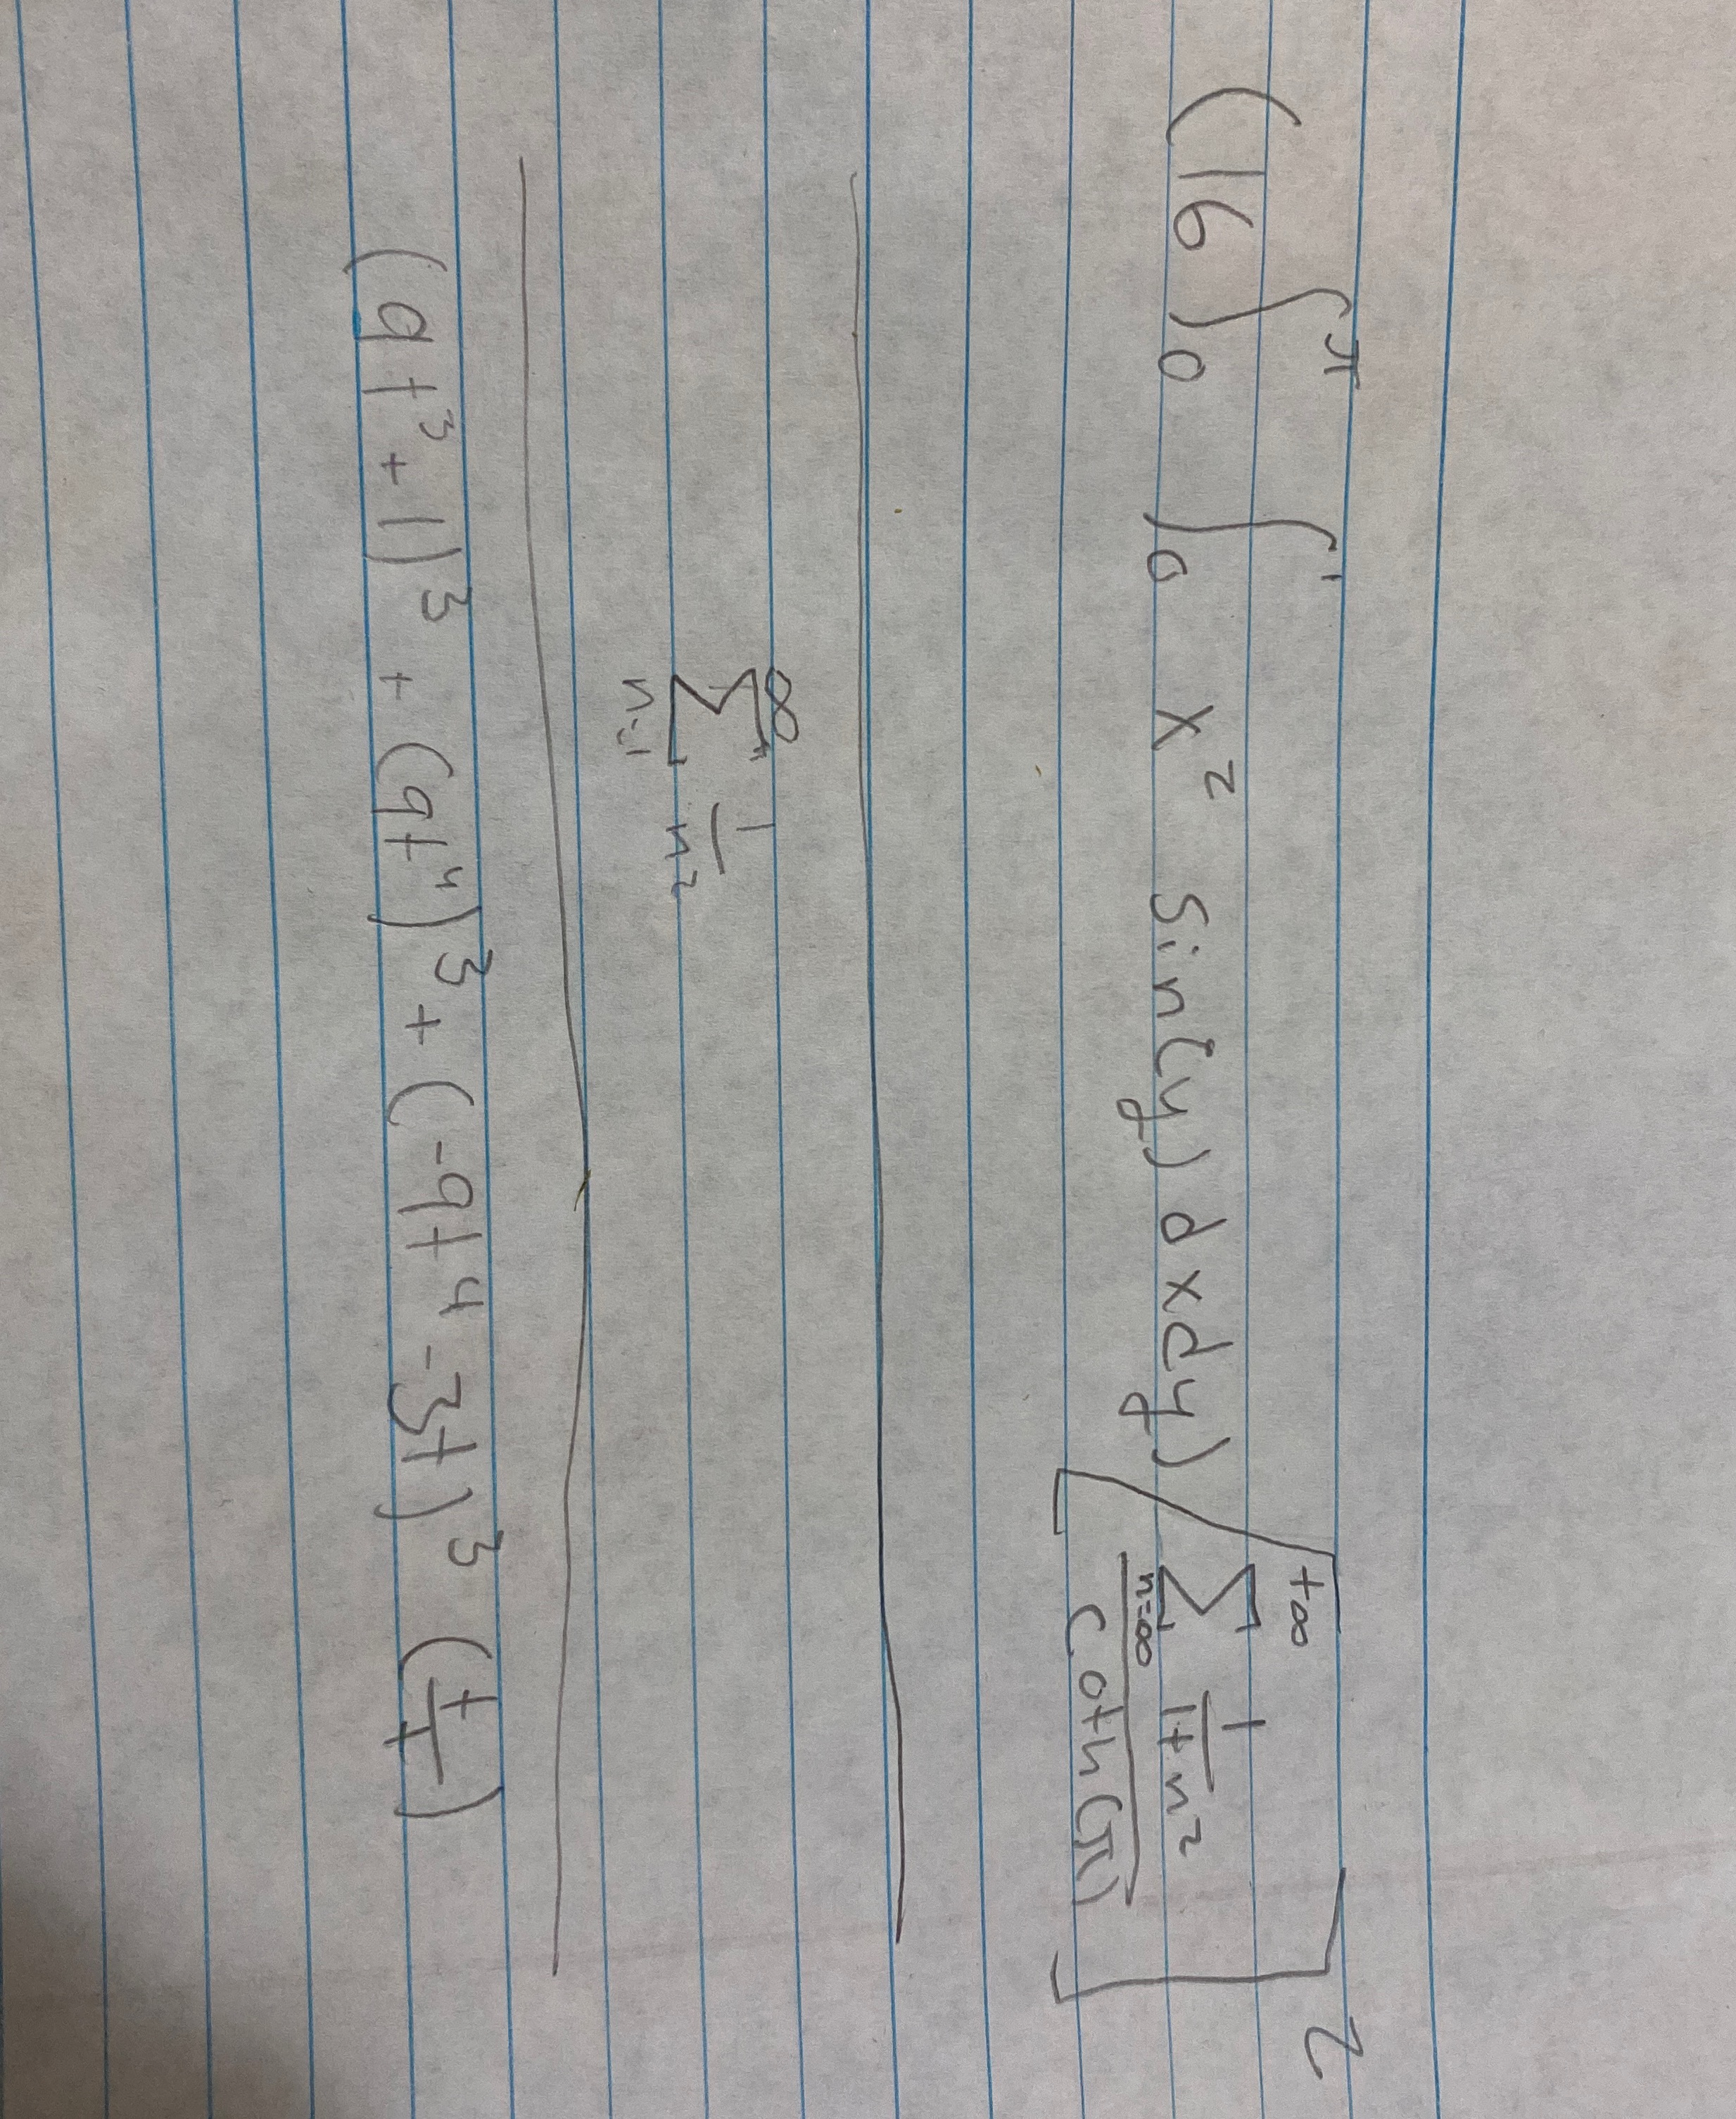 (16 ∫₀^π ∫₀^1 x² sin(y) dxdy) [ (∑_{n=-∞}^{+∞} 1/(1+n²)) / coth(π) ]²
∑_{n=1}^{∞} 1/n²
(9t³+1)³ + (9t⁴)³ + (-9t⁴-3t)³ (t/t)